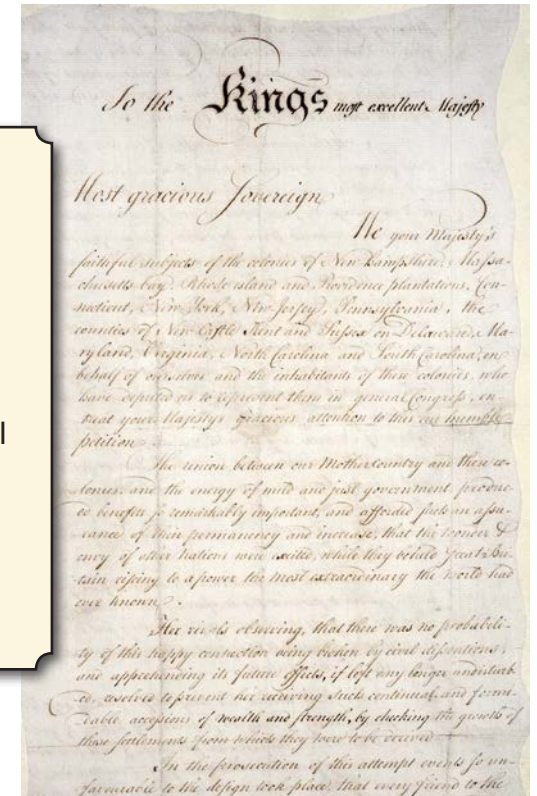 l
To the Kings most excellent Majesty
Most gracious Sovereign
We your Majesty's
faithful subjects of the colonies of New Hampshire, Massa-
chusetts bay, Rhode island and Providence plantations, Con-
necticut, New York, New Jersey, Pennsylvania, the
counties of New Castle Kent and Sussex on Delaware, Ma-
ryland, Virginia, North Carolina and South Carolina, on
behalf of ourselves and the inhabitants of these colonies, who
have deputed us to represent them in general Congress, en-
treat your Majestys gracious attention to this our humble
petition.
The union between our Mother country and these co-
lonies, and the energy of mild and just government, produc-
ed benefits so remarkably important, and afforded such an assu-
rance of their permanency and increase, that the wonder &
envy of other Nations were excited, while they beheld Great Bri-
tain riseing to a power the most extraordinary the world had
ever known.
Her rivals observing, that there was no probabili-
ty of this happy connection being broken by civil dissentions,
and apprehending its future effects, if left any longer undisturb-
ed, resolved to prevent her receiving such continual and formi-
dable accessions of wealth and strength, by checking the growth of
these settlements from which they were to be derived.
In the prosecution of this attempt events so un-
favourable to the design took place, that every friend to the